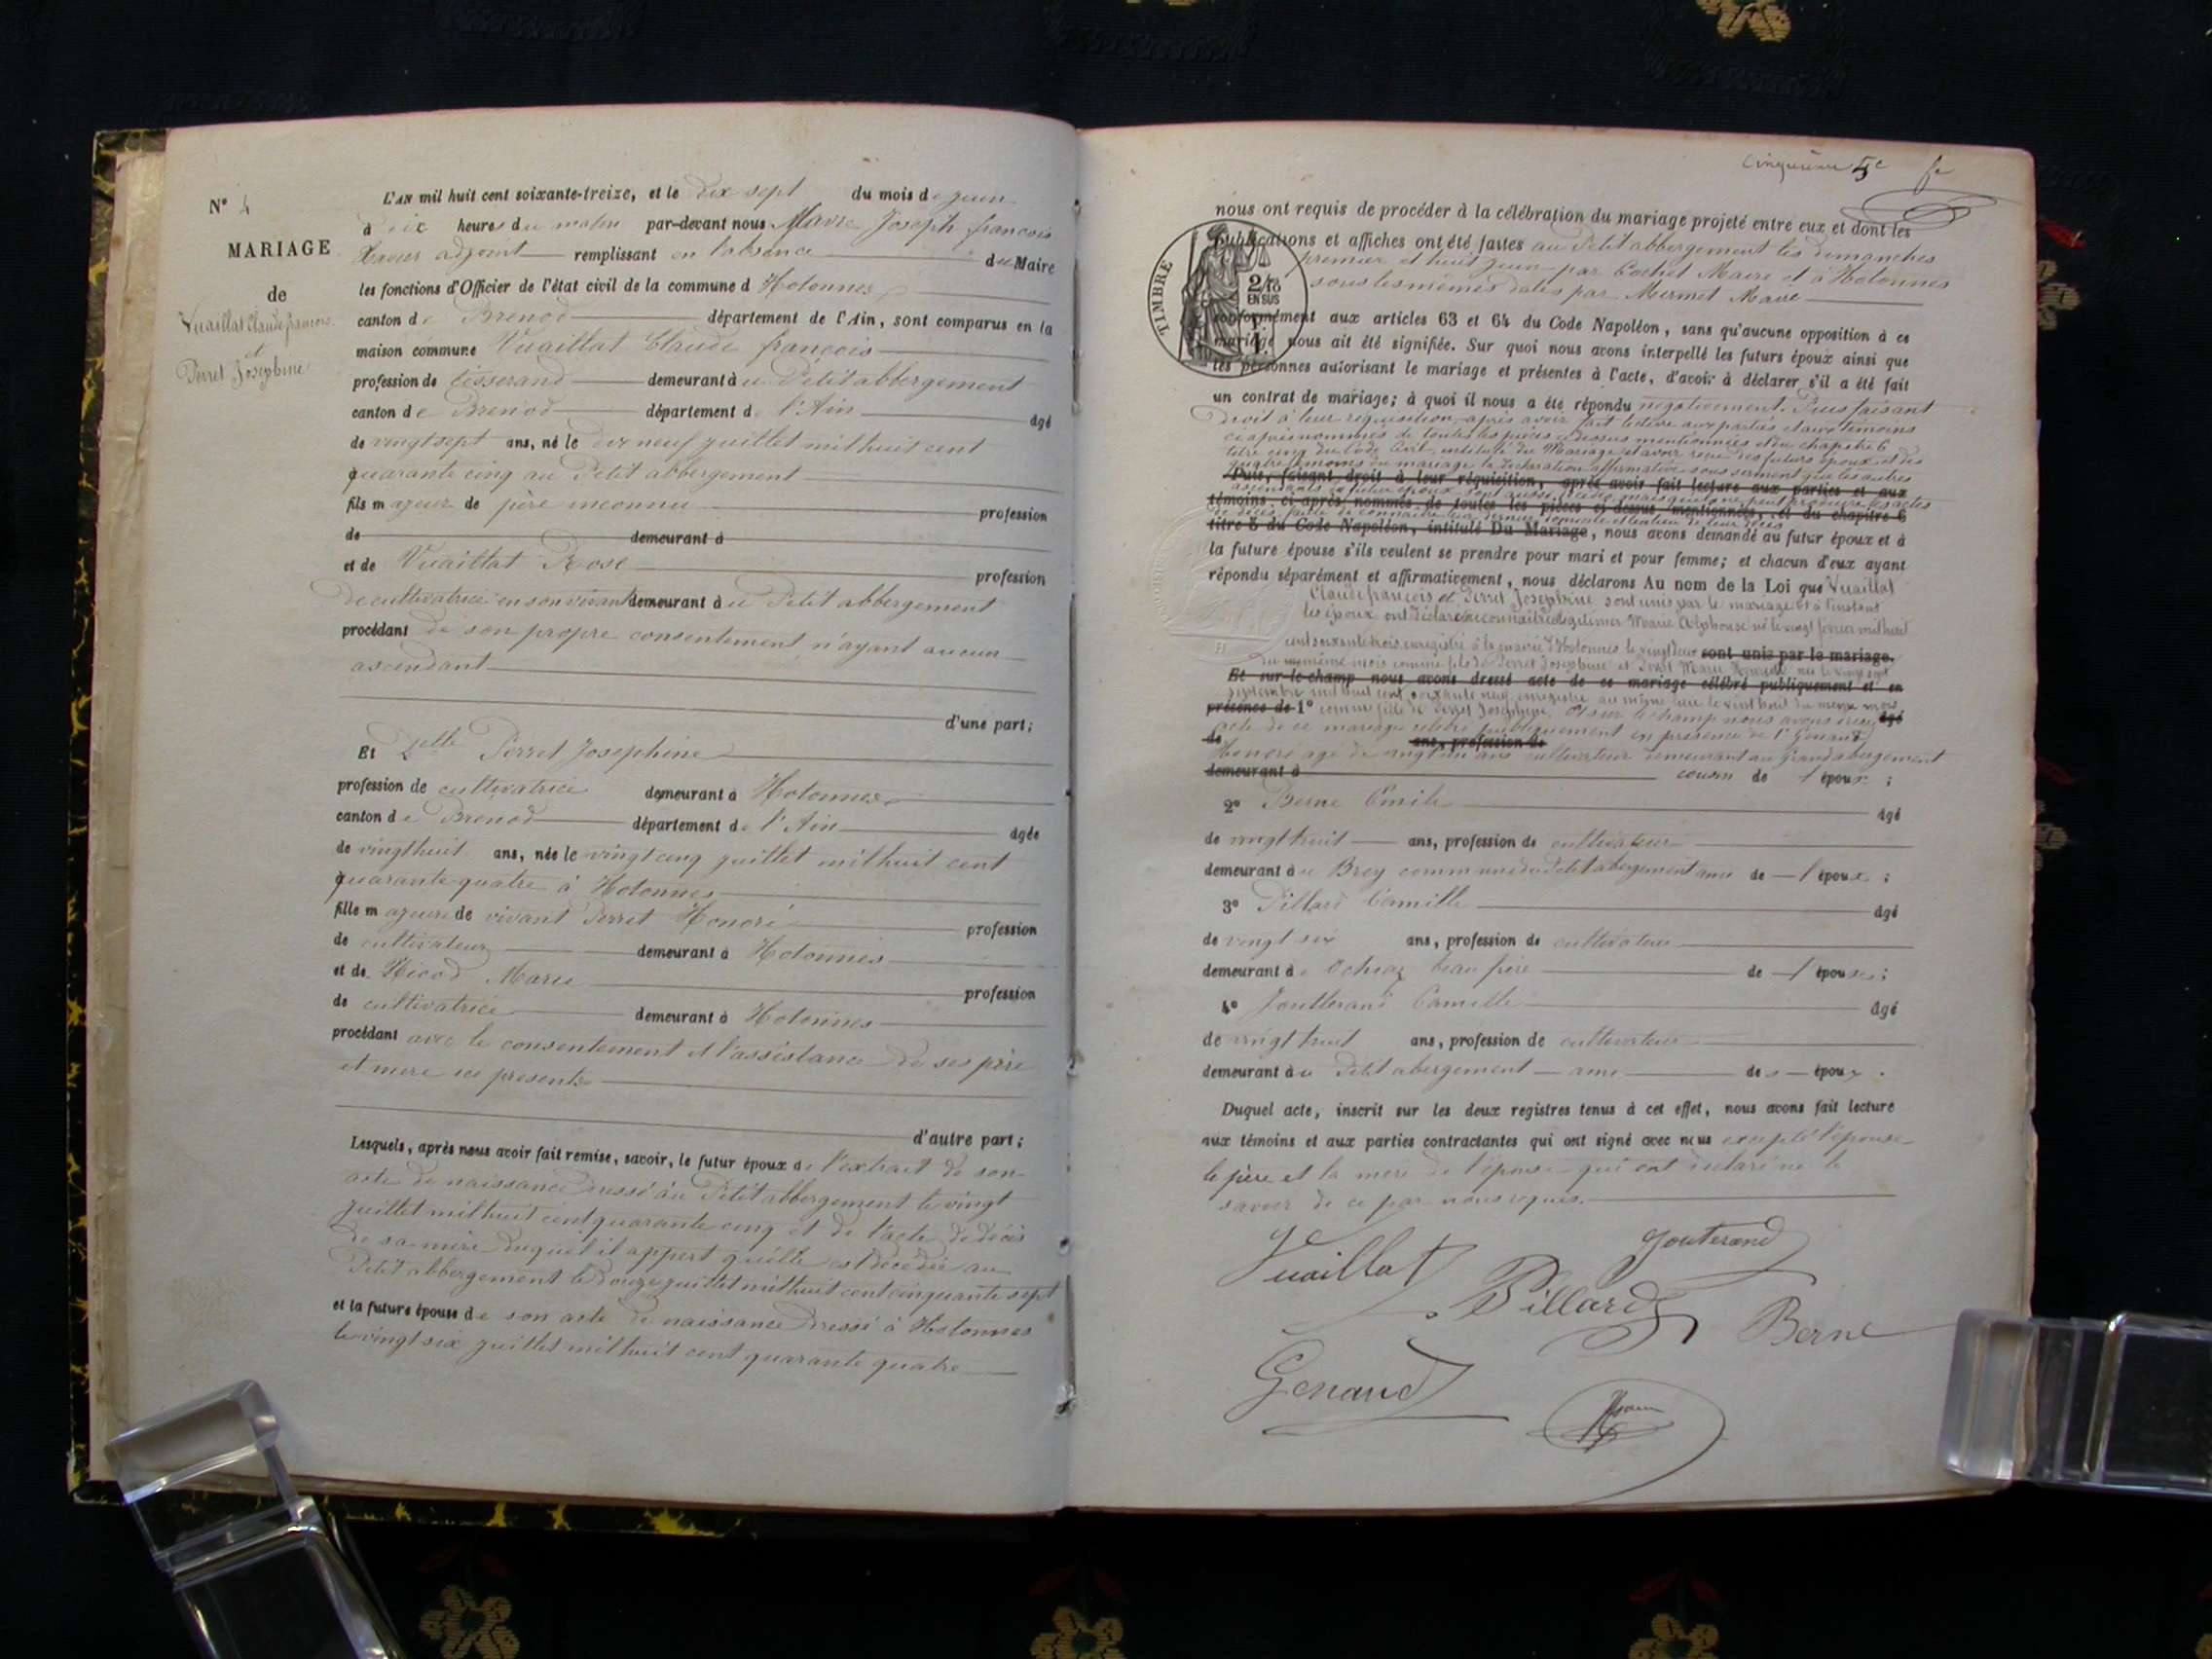 N° 4
MARIAGE
de
Vuaillat Claude françois
et
Perret Josephine
L'AN mil huit cent soixante-treize, et le dix sept du mois de juin
à dix heures du matin par-devant nous Joseph françois
adjoint remplissant en l'absence du Maire
les fonctions d'Officier de l'état civil de la commune d Hotonnes
canton de Brenod département de l'Ain, sont comparus en la
maison commune Vuaillat Claude françois
profession de tisserand demeurant à u Petit abbergement
canton de Brenod département de l'Ain âgé
de vingt sept ans, né le dix neuf juillet mil huit cent
quarante cinq au Petit abbergement
fils majeur de père inconnu profession
de demeurant à
et de Vuaillat Rose profession
de cultivatrice en son vivant demeurant à u Petit abbergement
procédant de son propre consentement n'ayant aucun
ascendant
d'une part;
Et Delle Perret Josephine
profession de cultivatrice demeurant à Hotonnes
canton de Brenod département de l'Ain âgée
de vingt huit ans, née le vingt cinq juillet mil huit cent
quarante quatre à Hotonnes
fille majeure de vivant Perret Honoré profession
de cultivateur demeurant à Hotonnes
et de Nicod Marie profession
de cultivatrice demeurant à Hotonnes
procédant avec le consentement et l'assistance de ses père
et mere ici presents
d'autre part;
Lesquels, après nous avoir fait remise, savoir, le futur époux de l'extrait de son
acte de naissance dressé au Petit abbergement le vingt
juillet mil huit cent quarante cinq et de l'acte de décès
de sa mère duquel il appert qu'elle est décédée au
Petit abbergement le douze juillet mil huit cent cinquante sept
et la future épouse de son acte de naissance dressé à Hotonnes
le vingt six juillet mil huit cent quarante quatre
cinquième 5e fe
nous ont requis de procéder à la célébration du mariage projeté entre eux et dont les
publications et affiches ont été faites au Petit abbergement les dimanches
premier et huit juin par Cochet Maire et à Hotonnes
sous les mêmes dates par Mermet Maire
TIMBRE
2/10
EN SUS
conformément aux articles 63 et 64 du Code Napoléon, sans qu'aucune opposition à ce
mariage nous ait été signifiée. Sur quoi nous avons interpellé les futurs époux ainsi que
les personnes autorisant le mariage et présentes à l'acte, d'avoir à déclarer s'il a été fait
un contrat de mariage; à quoi il nous a été répondu negativement. Puis faisant
droit à leur réquisition, après avoir fait lecture aux parties et aux témoins
ci après nommés de toutes les pièces ci dessus mentionnées et du chapitre 6
titre cinq du Code Civil, intitulé du Mariage et avoir reçu des futurs époux et des
quatre témoins du mariage la déclaration affirmative sous serment que les autres
Puis, faisant droit à leur réquisition, après avoir fait lecture aux parties et aux
témoins ci-après nommés de toutes les pièces ci-dessus mentionnées, et du chapitre 6
titre 5 du Code Napoléon, intitulé Du Mariage, nous avons demandé au futur époux et à
la future épouse s'ils veulent se prendre pour mari et pour femme; et chacun d'eux ayant
répondu séparément et affirmativement, nous déclarons Au nom de la Loi que Vuaillat
Claude françois et Perret Josephine sont unis par le mariage. Et à l'instant
les époux ont déclaré reconnaitre et legitimer Marie Alphonse né le vingt fevrier mil huit
cent soixante trois enregistré à la mairie d'Hotonnes le vingt deux sont unis par le mariage.
du même mois comme fils de Perret Josephine et Perret Marie née le vingt sept
Et sur-le-champ nous avons dressé acte de ce mariage célébré publiquement et en
septembre mil huit cent soixante neuf enregistré au même lieu le vingt huit du meme mois
présence de 1° comme fille de Perret Josephine. Et sur le champ nous avons dressé âgé
acte de ce mariage célébré publiquement en presence de 1° Genaud
de ans, profession de
Honoré agé de vingt un ans cultivateur demeurant au Grand abergement
demeurant à cousin de l'époux ;
2° Berne Emile âgé
de vingt huit ans, profession de cultivateur
demeurant à u Brey commune du Petit abergement ami de l'époux ;
3° Pillard Camille âgé
de vingt six ans, profession de cultivateur
demeurant à Ochiaz beau frère de l'épouse;
4° Joutterand Camille âgé
de vingt huit ans, profession de cultivateur
demeurant à u Petit abergement ami des époux.
Duquel acte, inscrit sur les deux registres tenus à cet effet, nous avons fait lecture
aux témoins et aux parties contractantes qui ont signé avec nous excepté l'épouse
le père et la mere de l'épouse qui ont déclaré ne le
savoir de ce par nous requis.
Vuaillat
Jouterand
Pillard
Berne
Genaud